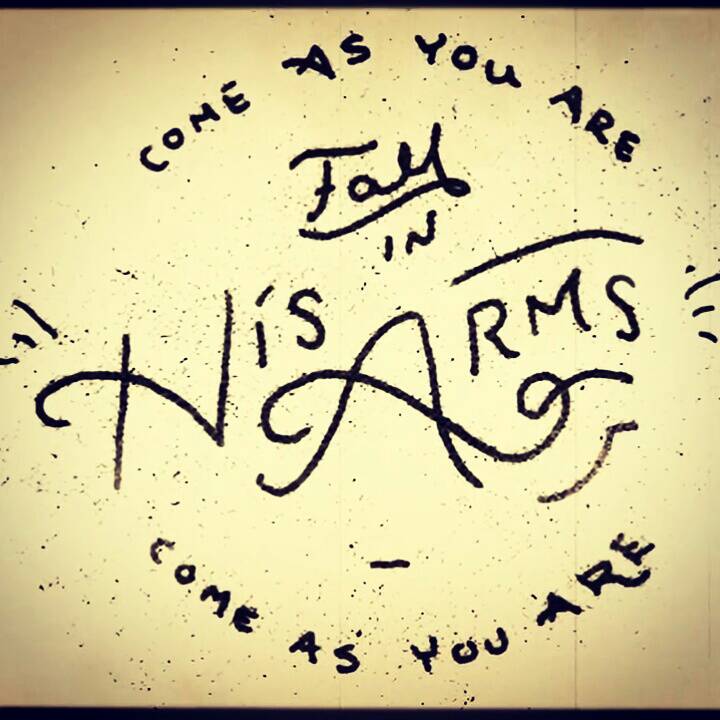 COME AS YOU ARE
Fall
IN
HiS ARMS
COME AS YOU ARE